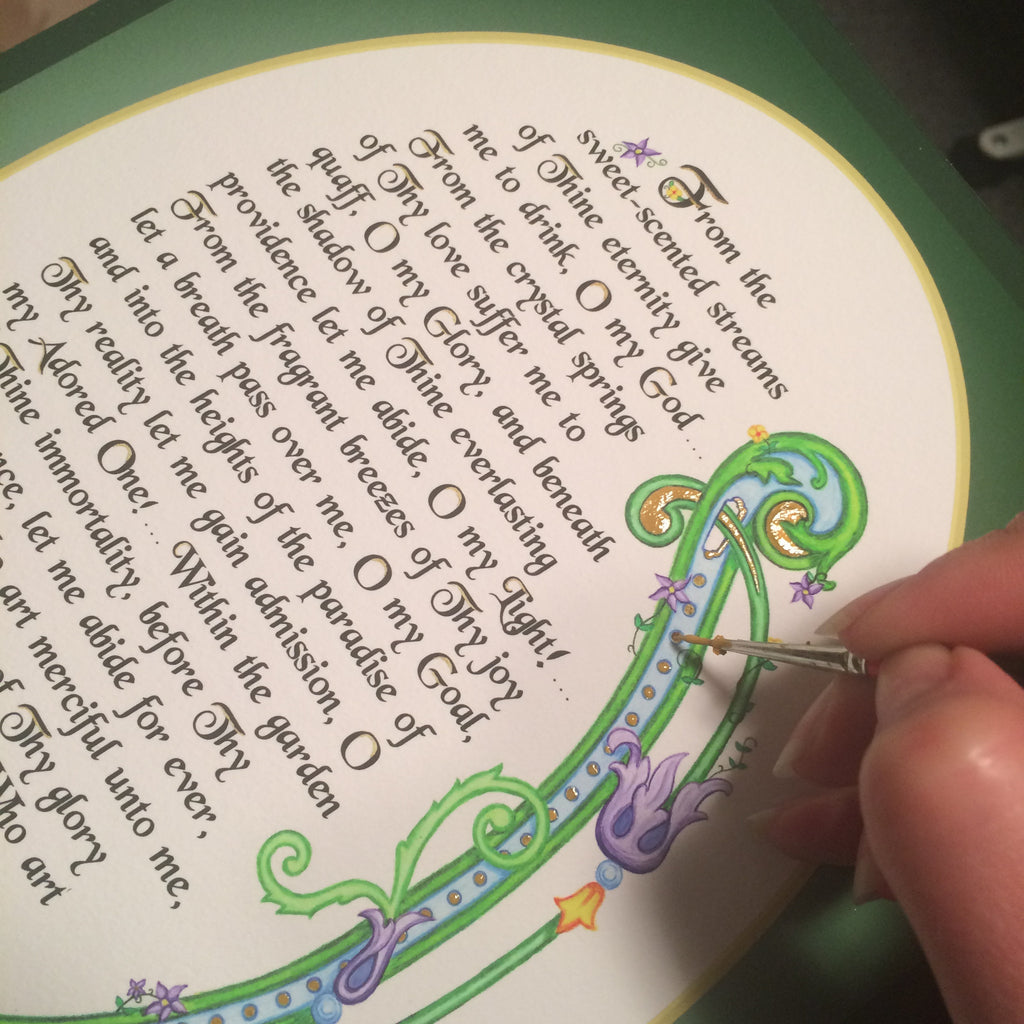 From the
sweet-scented streams
of Thine eternity give
me to drink, O my God....
From the crystal springs
of Thy love suffer me to
quaff, O my Glory, and beneath
the shadow of Thine everlasting
providence let me abide, O my Light!....
From the fragrant breezes of Thy joy
let a breath pass over me, O my Goal,
and into the heights of the paradise of
Thy reality let me gain admission, O
my Adored One!.... Within the garden
Thine immortality, before Thy
let me abide for ever,
art merciful unto me,
of Thy glory
Who art